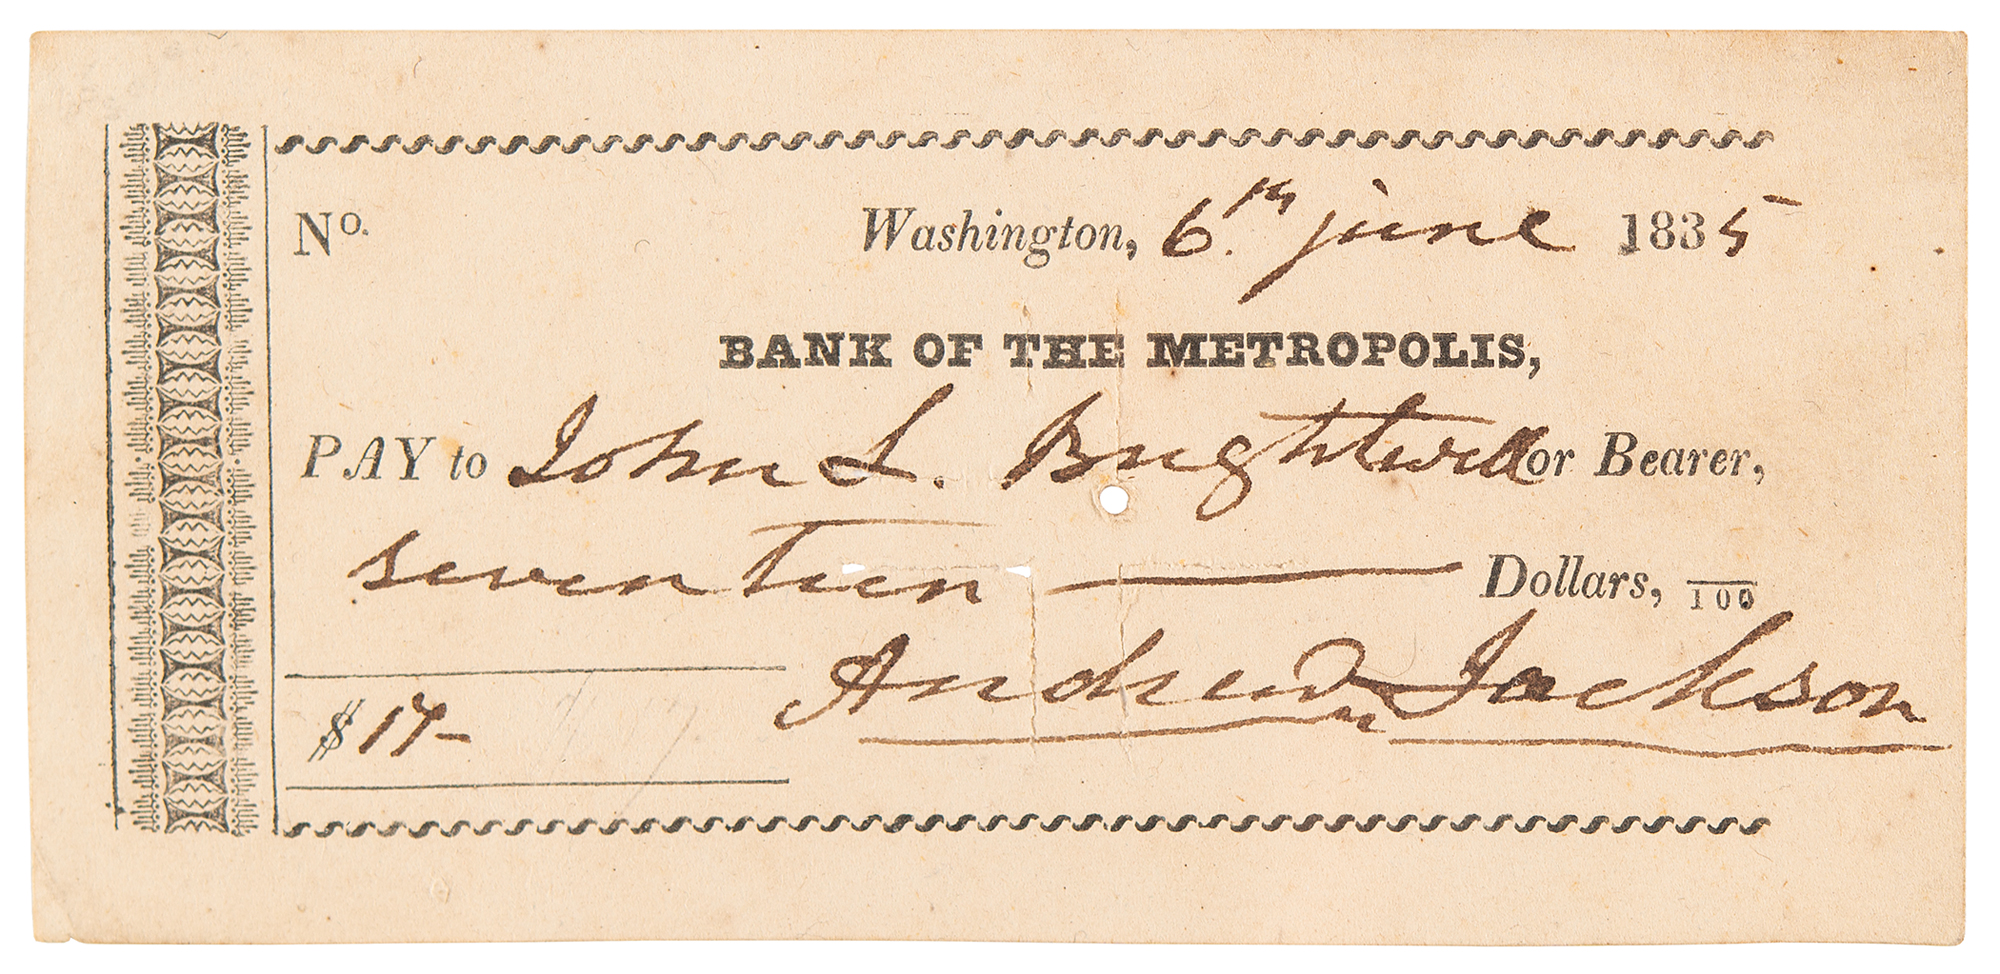 No. Washington, 6th june 1835
BANK OF THE METROPOLIS,
PAY to John L. Brightwell or Bearer,
seventeen — Dollars, /100
Andrew Jackson
$ 17-